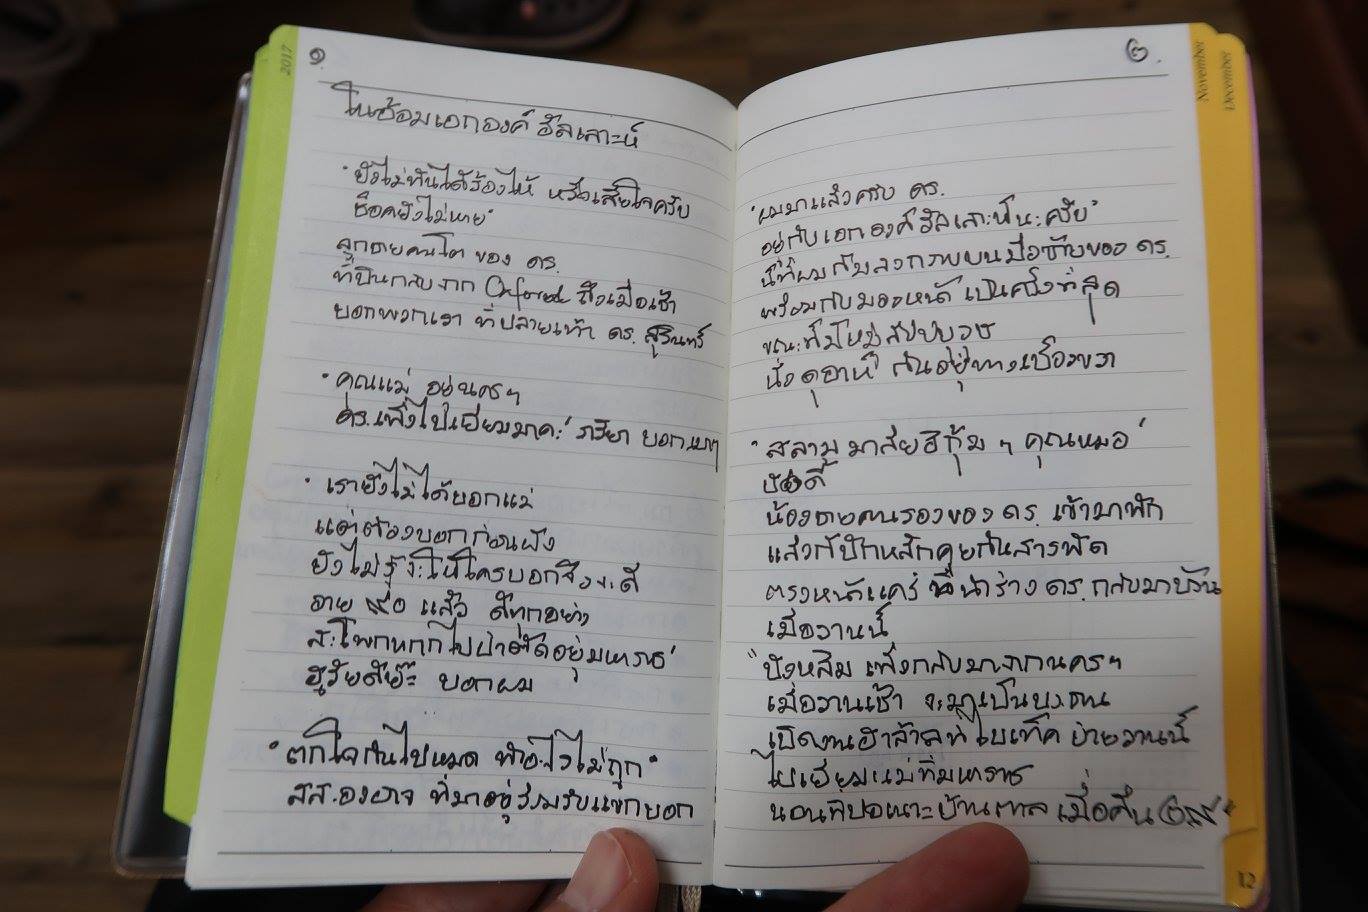 2017
๑
ในอ้อมเอกองค์ อัลเลาะห์
"ยังไม่ทันได้ร้องไห้ หรือเสียใจครับ
ช็อคยังไม่หาย"
ลูกชายคนโต ของ ดร.
ที่บินกลับจาก Oxford ถึงเมื่อเช้า
บอกพวกเรา ที่ปลายเท้า ดร. สุรินทร์
"คุณแม่ อยู่นครฯ
ดร.เพิ่งไปเยี่ยมมาค่ะ" ภริยา บอกเบาๆ
"เรายังไม่ได้บอกแม่
แต่ต้องบอกก่อนฝัง
ยังไม่รู้จะให้ใครบอกถึงจะดี
อายุ ๙๐ แล้ว ดีทุกอย่าง
สะโพกหักไปผ่าตัดอยู่มหาราช"
บอกผม
"ตกใจกันไปหมด ทำอะไรไม่ถูก"
สส. ที่มาอยู่ร่วมรับแขกบอก
November
December
๒.
"ผมมาแล้วครับ ดร.
อยู่กับเอกองค์อัลเลาะห์นะครับ"
นี่ที่ผมก้มลงกราบบนมือซ้ายของ ดร.
พร้อมกับมองหน้า เป็นครั้งที่สุด
ขณะที่มีหมู่สัปบุรุษ
นั่งดุอาห์ กันอยู่ทางเบื้องขวา
"สลามมาลัยฮิกุ้ม ๆ คุณหมอ"
บังดี
น้องชายคนรองของ ดร. เข้ามาทัก
แล้วก็ปักหลักคุยกันสารพัด
ตรงหน้าแคร่ ที่นำร่าง ดร. กลับมาบ้าน
เมื่อวานนี้
"บังหลีม เพิ่งกลับมาจากนครฯ
เมื่อวานเช้า จะมาเป็นประธาน
เปิดงานฮาลาลที่ไบเทค บ่ายวานนี้
ไปเยี่ยมแม่ที่มหาราช
นอนที่ปอเนาะบ้านตาล เมื่อคืน ๒๙"
12